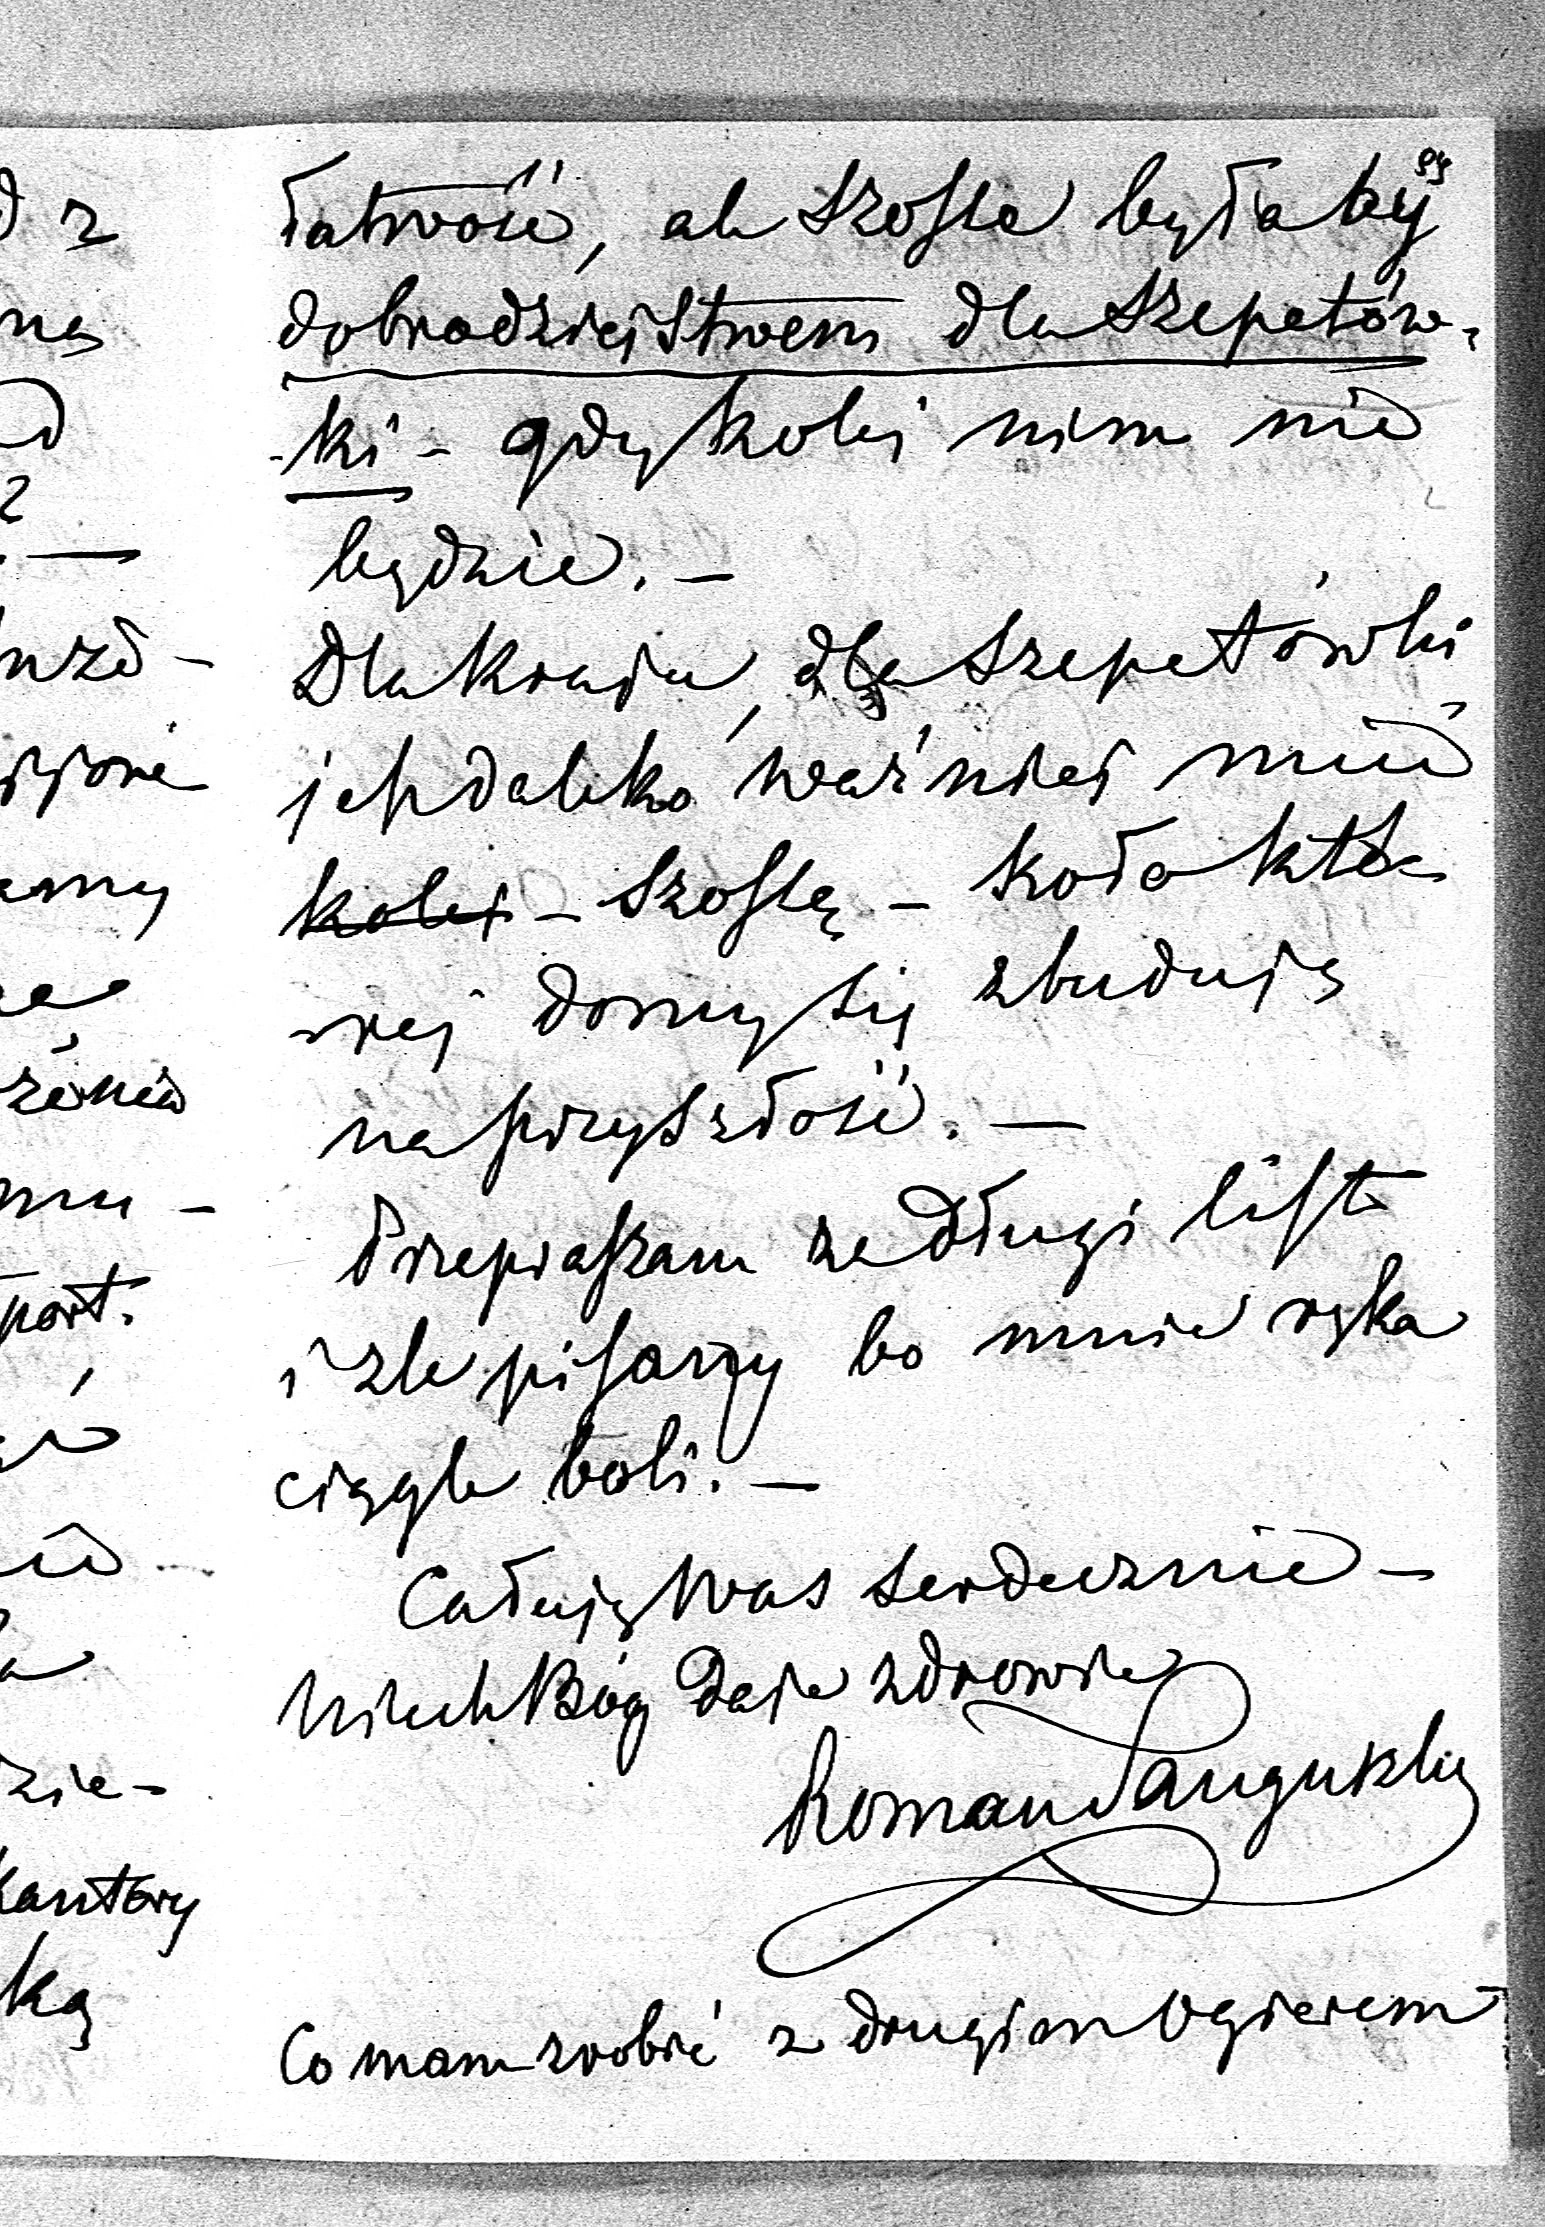 łatwość, ale szossa byłaby
dobrodziejstwem dla Szepetów-
-ki - gdy kolej nim nie
będzie. —
Dla kraju, dla Szepetówki
jest daleko ważniej mieć
kolej - szossę - koło któ-
rej domy się zbudują
na przyszłość. —
Przepraszam za długi list
i źle pisany bo mnie ręka
ciągle boli. —
Całuję Was serdecznie —
Niech Bóg daje zdrowie
Roman Sanguszko
Co mam zrobić z drugim ogierem